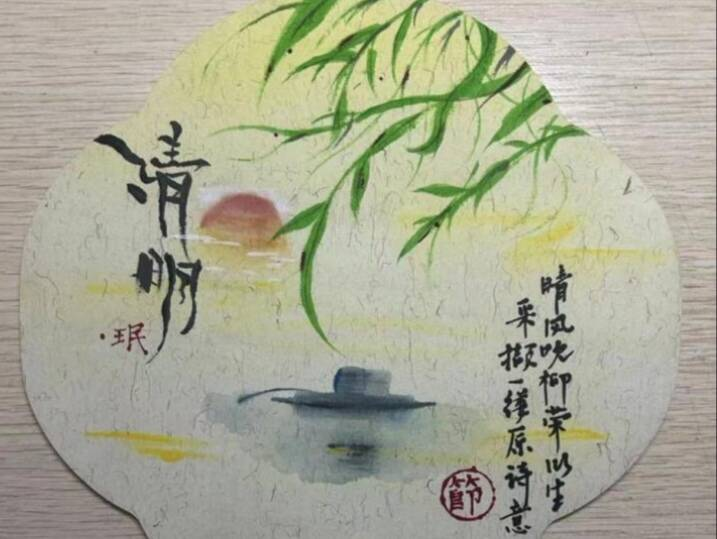 清明
珉
晴风吹柳荣以生
采撷一缕原诗意
節